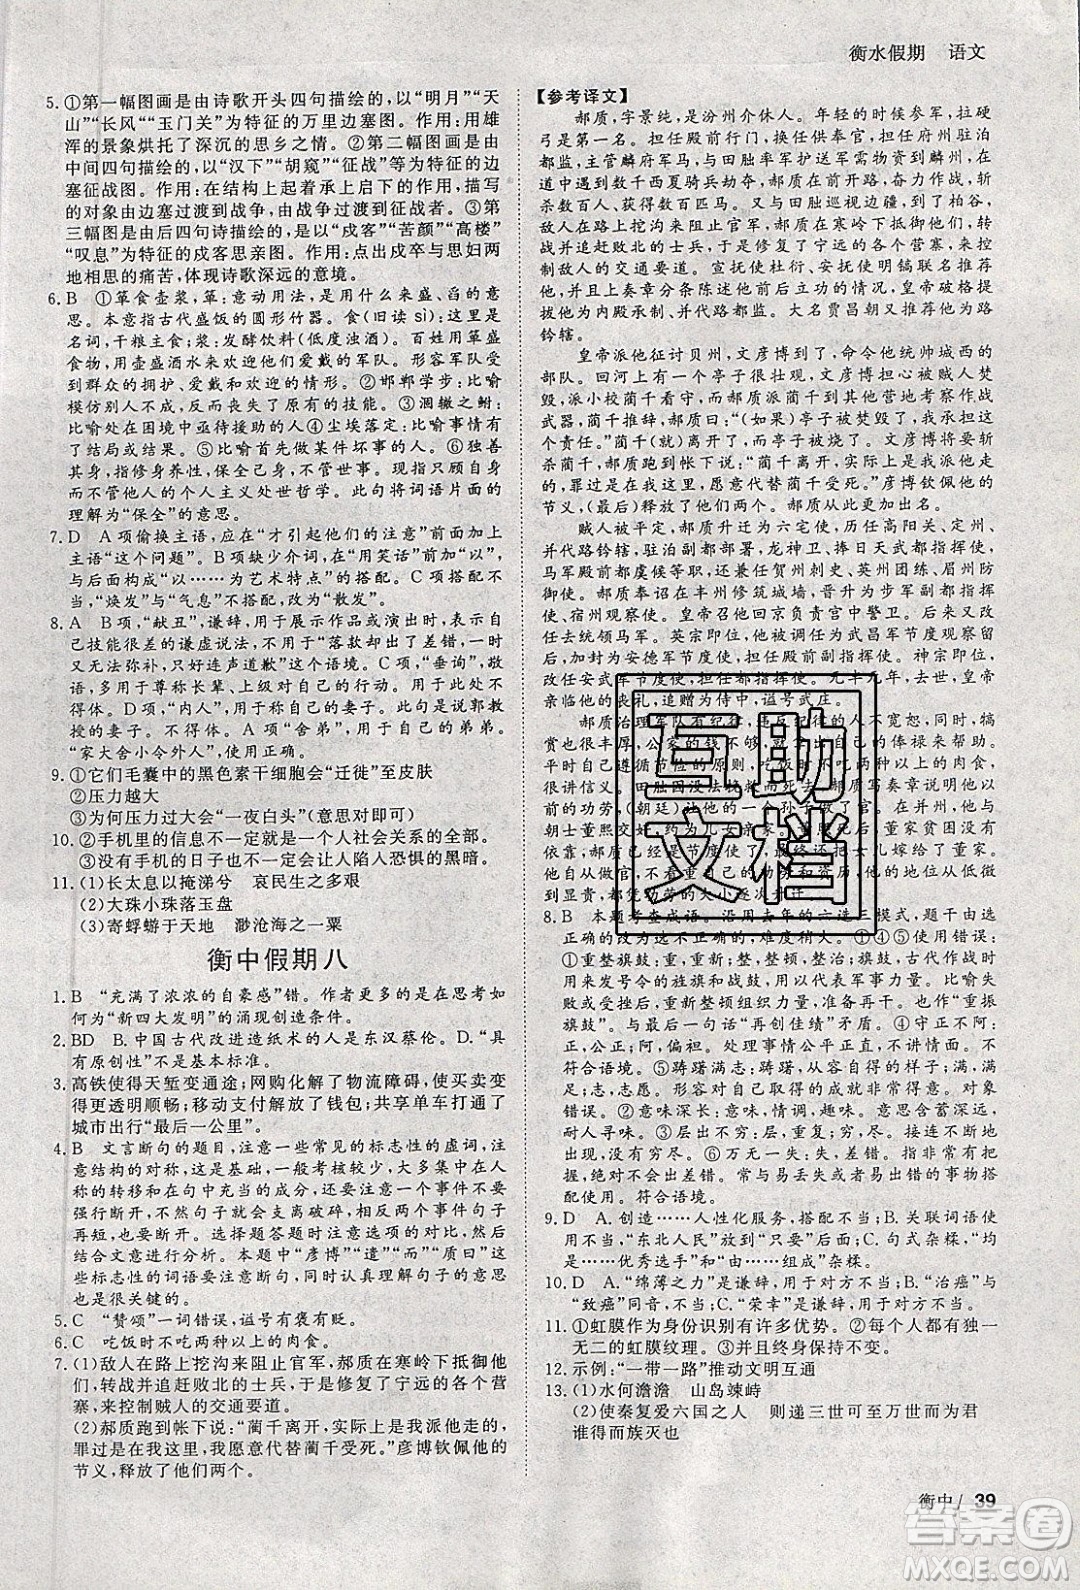 衡水假期　语文
5. ①第一幅图画是由诗歌开头四句描绘的，以“明月”“天
山”“长风”“玉门关”为特征的万里边塞图。作用：用雄
浑的景象烘托了深沉的思乡之情。②第二幅图画是由
中间四句描绘的，以“汉下”“胡窥”“征战”为特征的边
塞征战图。作用：在结构上承上启下的作用，描写
的对象由边塞过渡到战争，由战争过渡到征战者。③第
三幅图画由后四句诗描绘，以“戍客”“苦颜”“高楼”
“叹息”为特征的戍客思亲图。作用：点出戍卒与思妇两
地相思的痛苦，体现诗歌深远的意境。
6. B　①箪食壶浆，箪：意动用法，是用来盛、舀的意
思。本意指古代盛饭的圆形竹器。食（旧读 sì）：这里是
名词，干粮主食；浆：发酵饮料（低度浊酒）。百姓用箪盛
食物，用壶盛酒水来欢迎他们爱戴的军队。形容军队受
到群众的拥护、爱戴和欢迎的情形。②邯郸学步：比喻
模仿别人不成，反而丧失了原有的技能。③涸辙之鲋：
比喻处在困境中亟待援助的人④尘埃落定：比喻事情有
了结局或结果。⑤比喻首先做某件坏事的人。⑥独善
其身，指修身养性，保全己身，不管世事。现指只顾自
己，不管他人的个人主义处世哲学。此句将词语片面的
理解为“保全”的意思。
7. D　A项偷换主语，应在“才引起他们的注意”前面加上
主语“这个问题”。B项缺少介词，在“用笑话”前加“以”，
构成“以……为艺术特点”的搭配。C项搭配不
当，“焕发”与“气息”不搭配，改为“散发”。
8. A　B项，“献丑”，谦辞，用于展示作品或演出时，表示自
己技能很差的谦虚说法，不用于“落款却出了差错，现在
无法弥补，只好连声道歉”这个语境。C项，“垂询”，敬
辞，多用于尊称长辈、上级对自己的询问。此处使用不
得体。D项，“内人”，对人称自己的妻子。此句是说郭
教授的妻子，不得体。A项“舍弟”，称自己的弟弟。
“家大舍小令外人”，使用正确。
9. ①它们毛囊中的黑色素干细胞会“迁徙”至皮肤
②压力越大
③为何压力过大会“一夜白头”（意思对即可）
10. ②手机里的信息不一定就是一个人社会关系的全部。
③没有手机的日子也不一定会让人陷入恐惧的黑暗。
11. (1)长太息以掩涕兮　哀民生之多艰
(2)大珠小珠落玉盘
(3)寄蜉蝣于天地　渺沧海之一粟
衡中假期八
1. B　“充满了浓浓的自豪感”错。作者更多的是在思考如
何为“新四大发明”的涌现创造条件。
2. BD　B.中国古代改进造纸术的人是东汉蔡伦。D.“具
有原创性”不是基本标准。
3. 高铁使得天堑变通途；网购化解了物流障碍，使买卖变
得更透明顺畅；移动支付化解了钱包；共享单车打通了
城市出行“最后一公里”。
4. B　文言断句的题目，注意一些常见的标志性的虚词，注
意结构的对称，一般考核较多的是，大多集中在人
称的转移和在句中充当的成分，两个事件的句子不要
强行断开，不然句子会支离破碎，两个事件两个句子
再短，也要断开。选择题答题时注意对比排除，然后
结合文意进行分析。本题中“彦博”“遣”“而”“质曰”这
些标志性的词语要注意断句，它们对于句子的意思也
是很关键的。
5. C　“赞颂”一词错误，谥号有褒有贬。
6. C　吃饭时不吃两种以上的肉食。
7. (1)敌人在路上挖沟来阻止官军，郝质在寒岭击败他们，
转战并追赶败北的士兵，于是修复了宁远等各个营
寨，来控制贼人的交通要道。
(2)郝质跑到帐下说：“蔺千离开，实际上是我派他去的，
罪过是在我，我愿意代替蔺千受死。”彦博钦佩他的
节义，一并释放了他们两个。
【参考译文】
郝质，字景纯，是汾州介休人。年轻的时候参军，拉硬
弓是第一名。担任殿前行门，换任供奉官，担任府州驻泊
都监，主管麟府军马，与田朏率军护送军需物资到麟州，在
道中遇到数千西夏骑兵劫夺，郝质在前开路，奋力作战，斩
杀数百人、获得数百匹马。又与田朏巡视边疆，到了柏谷，
敌人在路上挖沟阻止官军，郝质在寒岭下抵御他们，并且
转战并追赶败北的士兵，于是修复了宁远的各个营寨，来控
制敌人的交通要道。宣抚使杜衍、安抚使明镐联名推荐
他，并且上奏章分条陈述他前后立功的情况，皇帝破格提
拔他为内殿承制、并代路都监。大名贾昌朝又推荐他为路
钤辖。
皇帝派他征讨贝州，文彦博到了，命令他统帅城西的
部队。回河上有一个亭子很壮观，文彦博担心它被贼人焚
毁，派小校蔺千看守，而郝质派蔺千到其他营地考察作战
武器，蔺千推辞，郝质曰：“（如果）亭子被焚毁了，我承担这
个责任。”蔺千（就）离开了，而亭子被烧了。文彦博将要斩
杀蔺千，郝质跑到帐下说：“蔺千离开，实际上是我派他去
的，罪过是在我，我愿意代替蔺千受死。”彦博钦佩他的
节义，（最后）释放了他们两个。郝质从此更加出名。
贼人被平定，郝质升迁为六宅使，历任高阳关、定州、
并代路钤辖，驻泊副都部署，龙神卫、捧日天武都指挥使，
马军殿前都虞候等职，还兼任贺州刺史、英州团练、眉州防
御使。郝质奉诏在丰州修筑城墙，晋升为步军副都指挥
使、宿州观察使。皇帝召他回京负责宫中警卫。一年后又
改任去统领马军。英宗即位，改任他为武昌军节度观察留
后，加封为安德军节度使，担任殿前副都指挥使。神宗即位，改
任安武军节度使，担任都指挥使。元丰元年，去世，皇帝
亲临他的丧礼，追赠为侍中，谥号武庄。
郝质治理军队有纪律，违反犯过的人不宽恕，同时，犒
赏也很丰厚，公家的钱不够，
8. B　本题考查成语。沿用去年的六选三模式，题干由选
①重整旗鼓：重，重新；整，整顿，整治；旗鼓，古代作战时
放在一句，与最后一句话“再创佳绩”矛盾。④守正不阿：
正，公正；阿，偏袒。处理事情公平正直，不讲情面。
⑤踌躇满志：
②意味深长：意味，情调，趣味。意思含蓄深远，
耐人寻味。③层出不穷：层，重复；穷，尽。接连不断地出
⑥万无一失：
搭配使用。符合语境。
9. D　A.创造……人性化服务，搭配不当；B.关联词语使
用有误，“东北人民”应放到“只要”后；C.句式杂糅，“是
……优秀选手”和“由……组成”杂糅。
10. D　A.“绵薄之力”是谦辞，用于对方不当；B.“治癌”与
“致癌”同音，不明确；C.“荣幸”是谦辞，用于对方不当。
11. ①虹膜作为身份识别有许多优势。②每个人都有独一
无二的虹膜纹理。③并且终身保持不变。
12. 示例：“一带一路”推动文明互通
13. (1)水何澹澹　山岛竦峙
(2)使秦复爱六国之人　则递三世可至万世而为君
谁得而族灭也
互助
文档
衡中 / 39
答案圈
MXQE.COM